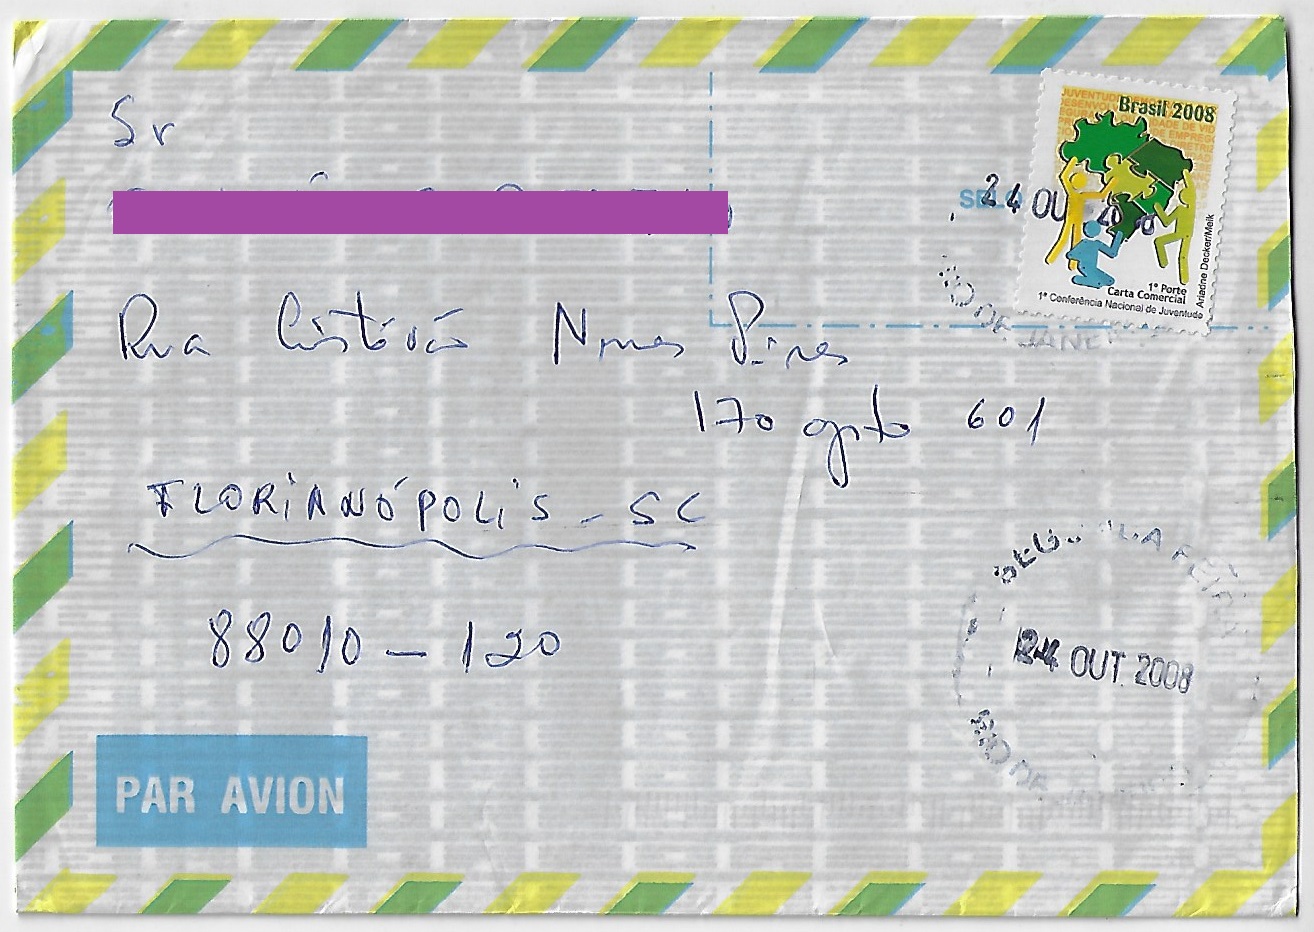 Sr
Rua Cristóvão Nunes Pires
170 apto 601
FLORIANÓPOLIS - SC
88010-120
PAR AVION
SELO
Brasil 2008
1º Porte
Carta Comercial
1ª Conferência Nacional de Juventude
Ariadne Decker/Meik
24 OUT 2008
RIO DE JANEIRO
24 OUT. 2008
RIO DE JANEIRO